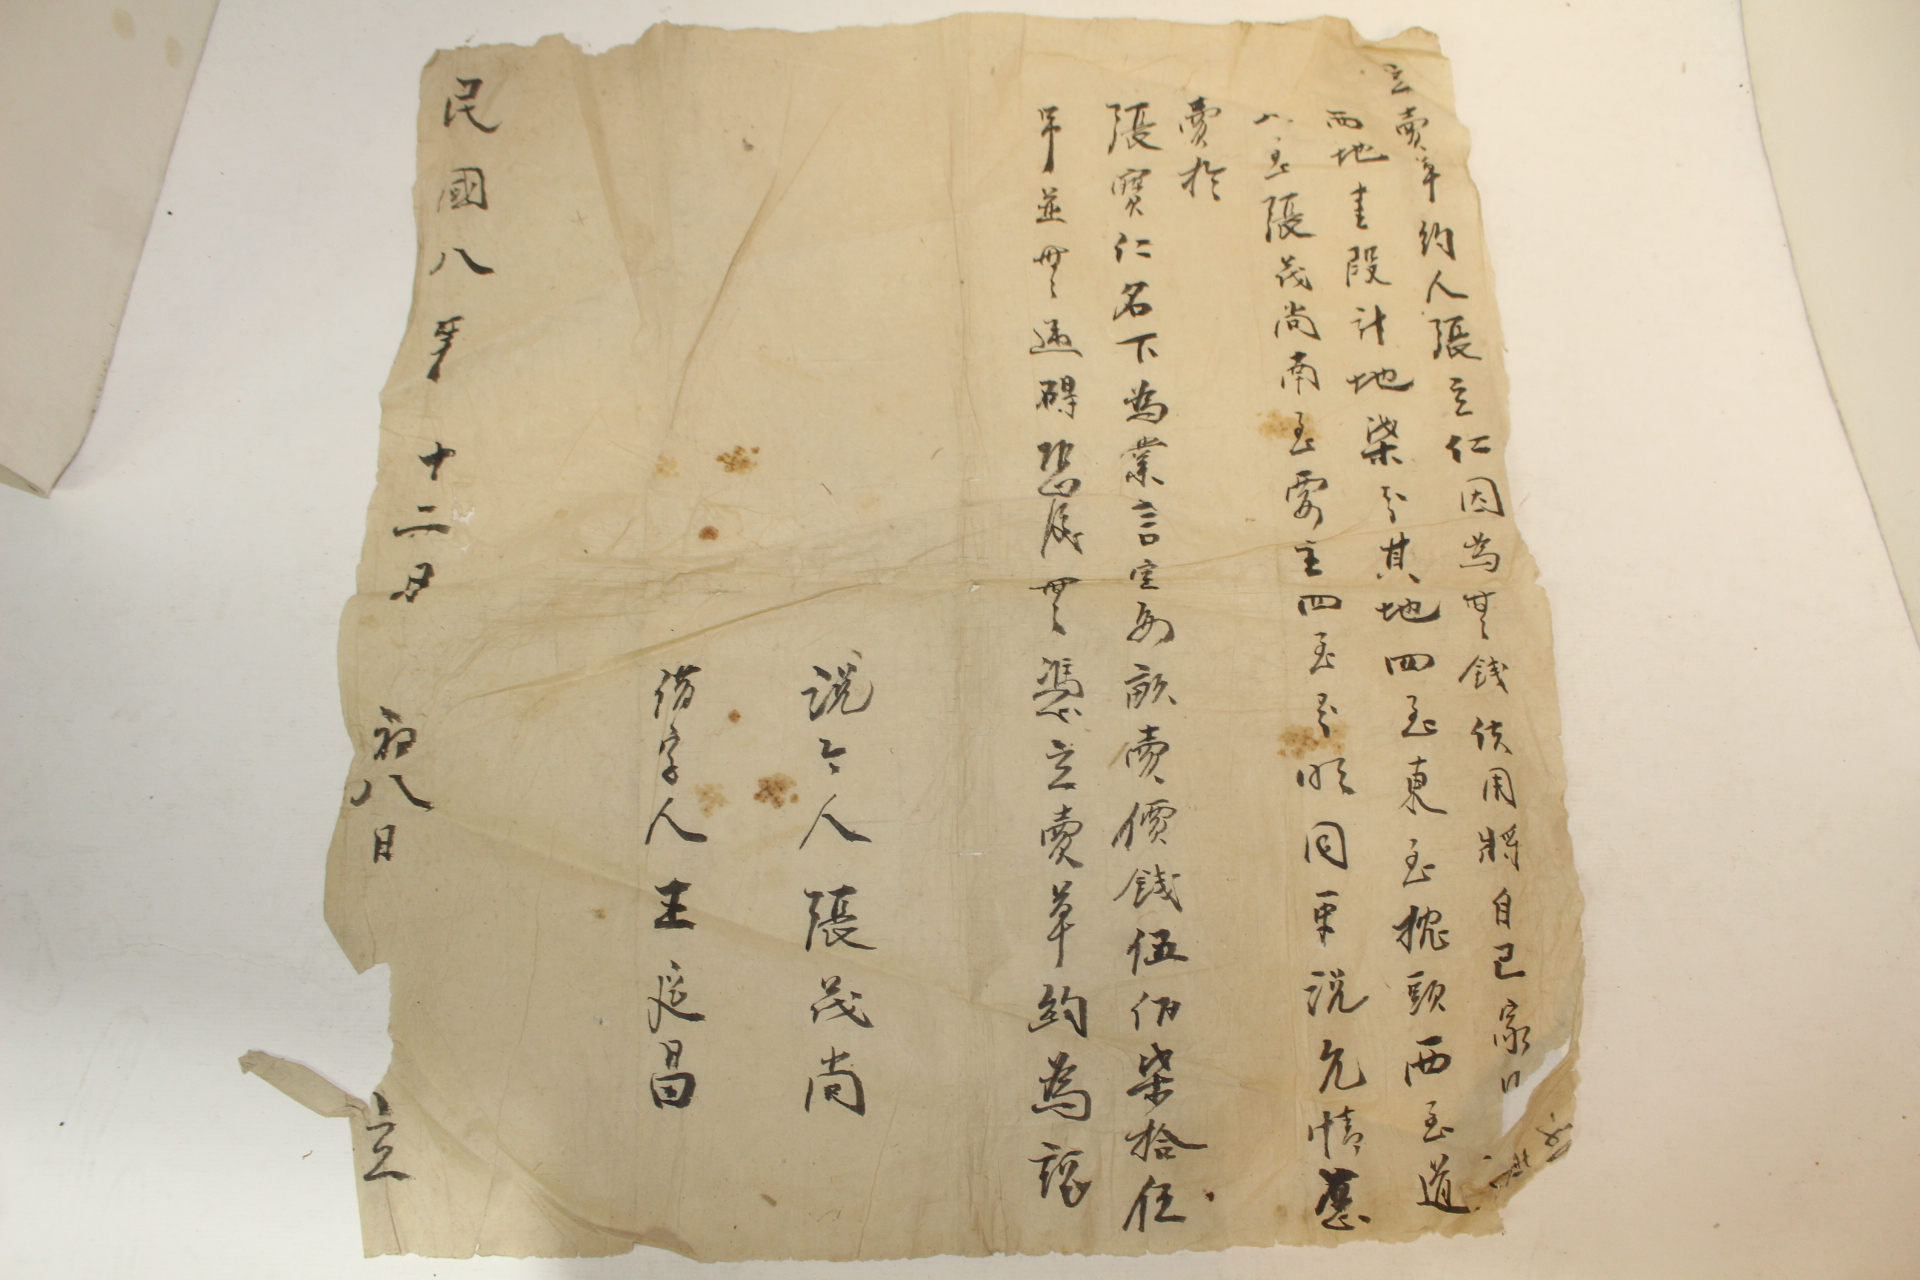 立賣草約人張立仁因為無錢使用將自已家口
西地壹段計地柒分其地四至東至挽頭西至道
八至張茂尚南至賣主四至分明同眾說允情愿
賣於
張寶仁名下為業言定每畝賣價錢伍佰柒拾伍
吊並無遥碍恐後無憑立賣草約為証
說合人張茂尚
借字人王廷昌
民國八年十二月初八日立